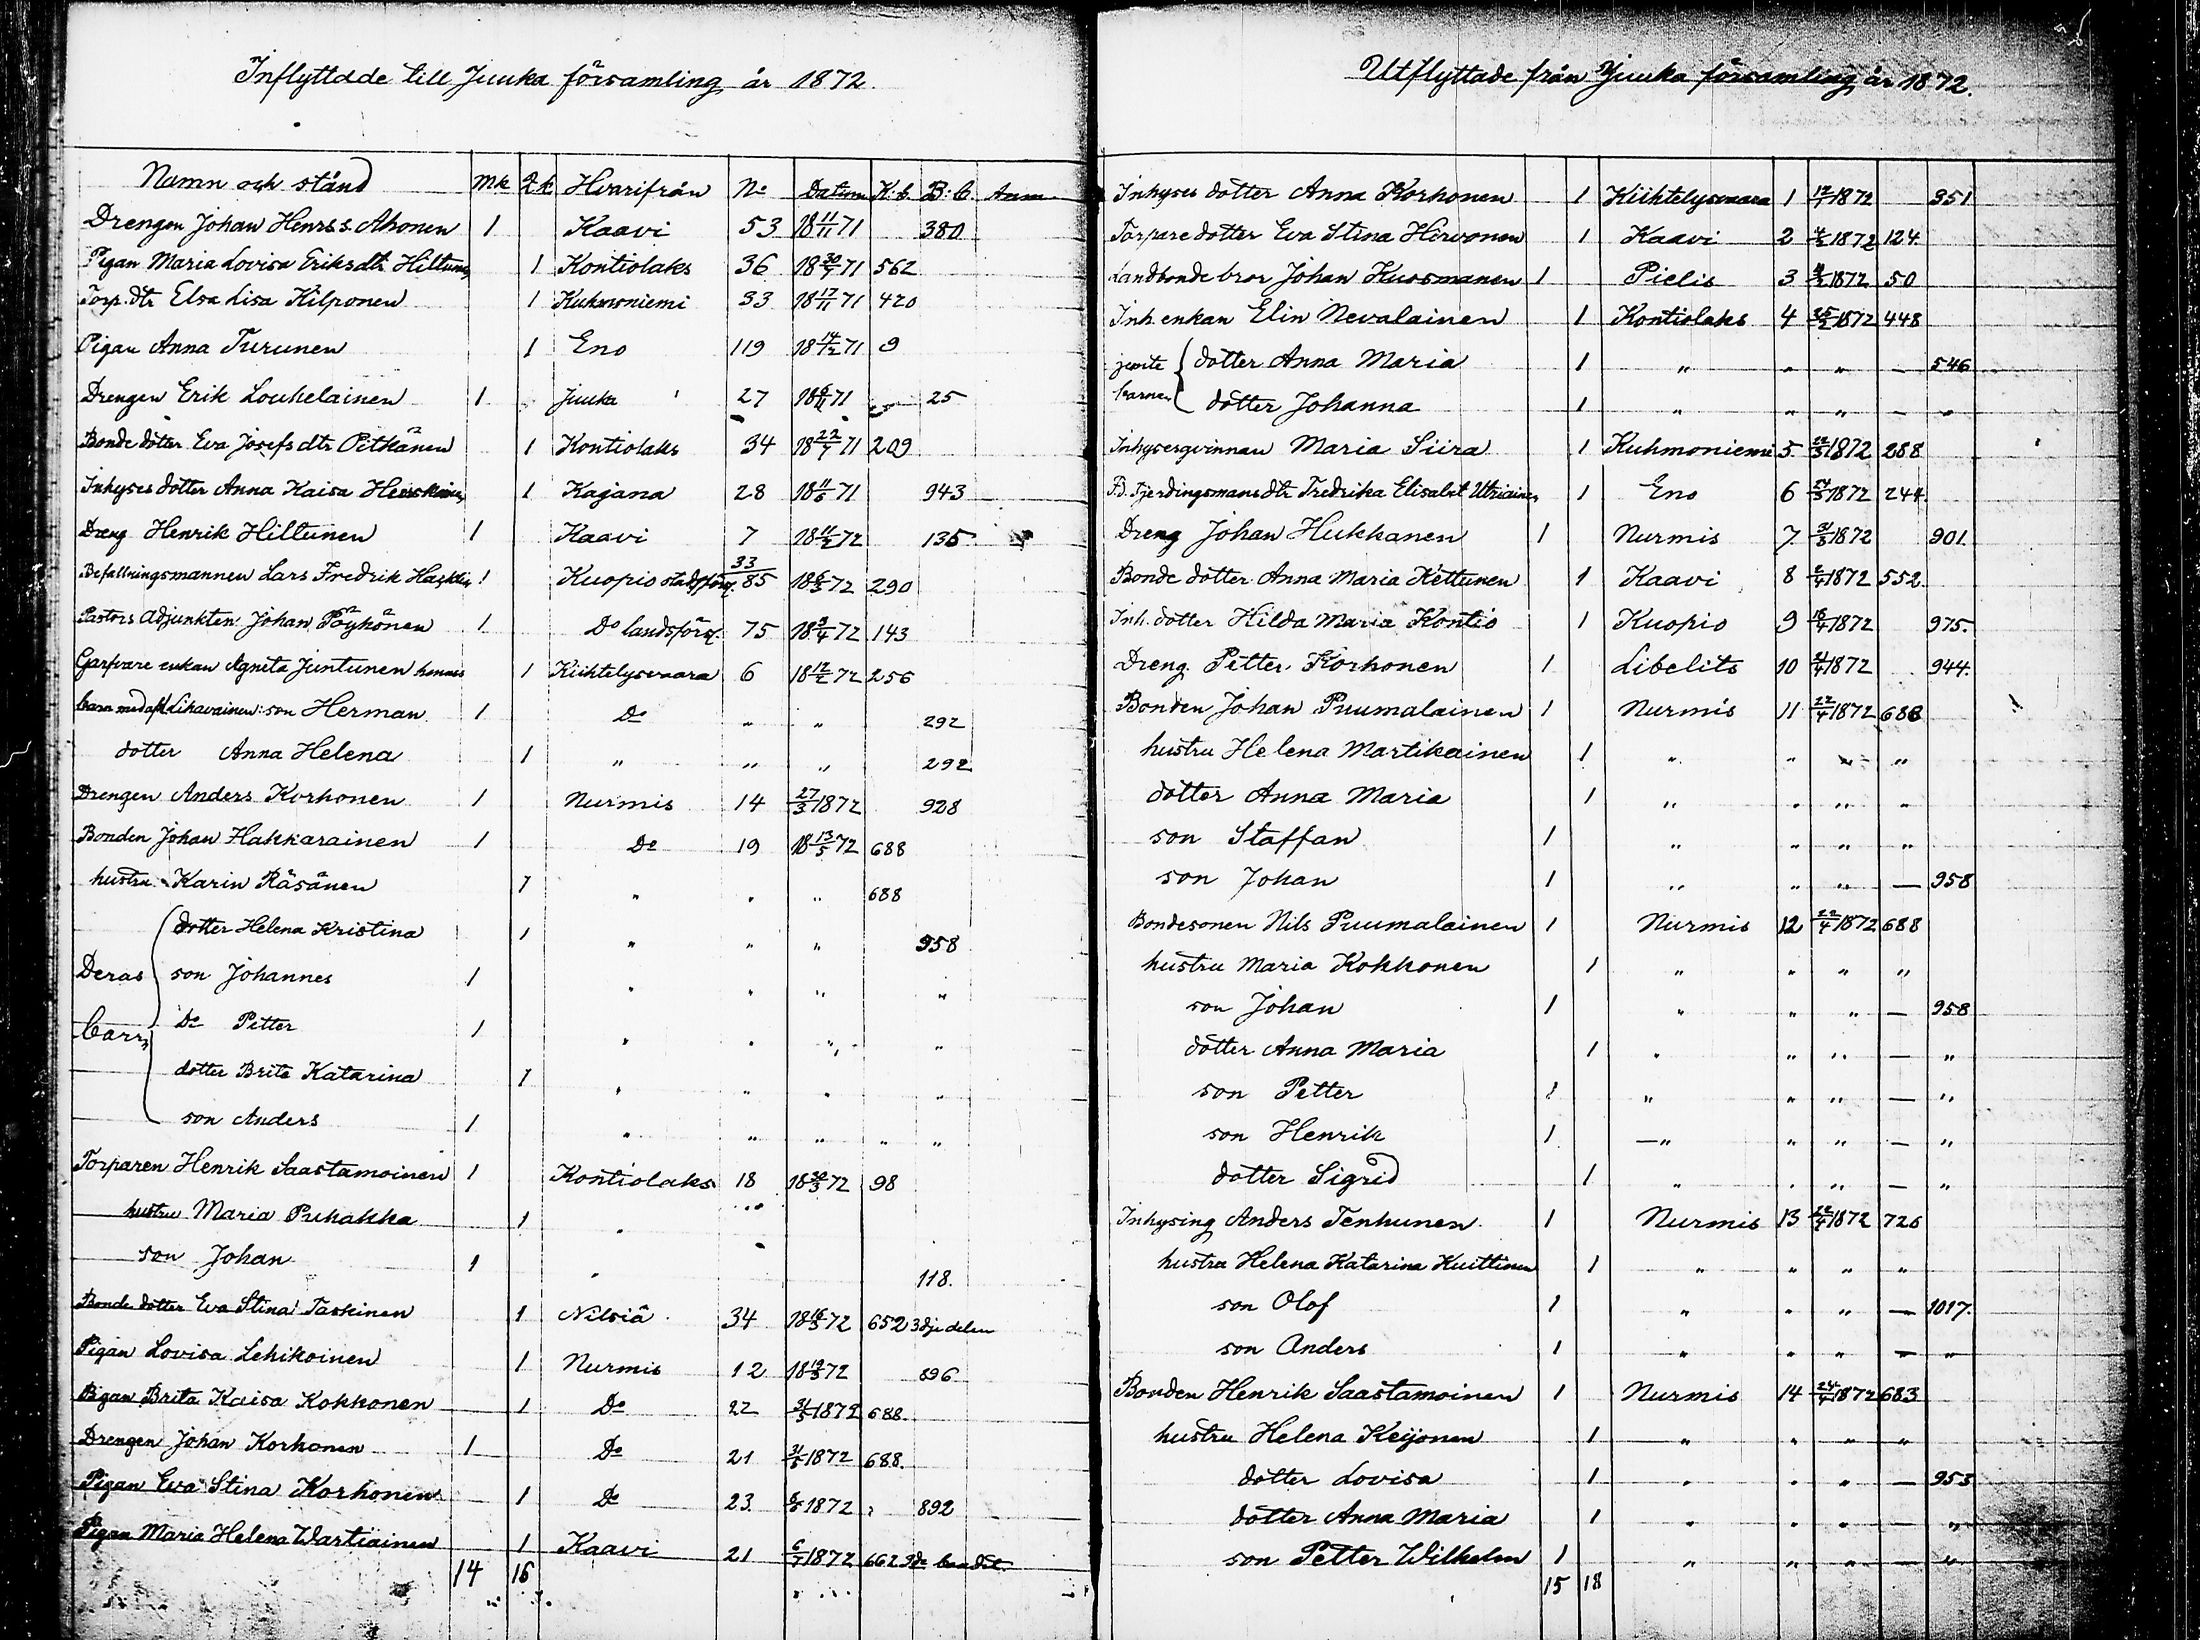 Inflyttade till Juuka församling år 1872.
Namn och stånd Mk Qk Hvarifrån No Datum K.b. B.b. Anm
Drengen Johan Henrss. Ahonen 1 Kaavi 53 18 11/11 71 380
Pigan Maria Lovisa Eriksdtr Hiltunen 1 Kontiolaks 36 18 30/7 71 562
Torp. dtr Elsa Lisa Kilponen 1 Kuhmoniemi 33 18 17/11 71 420
Pigan Anna Turunen 1 Eno 119 18 14/12 71 9
Drengen Erik Louhelainen 1 Juuka 27 71 25
Bonde dotter Eva Josefs dtr Pitkänen 1 Kontiolaks 34 18 22/7 71 209
Inhyses dotter Anna Kaisa 1 Kajana 28 71 943
Dreng Henrik Hiltunen 1 Kaavi 7 18 11/2 72 135
Befallningsmannen Lars Fredrik 1 Kuopio stadsförs. 33/85 72 290
Pastors Adjunkten Johan Pöyhönen 1 Do landsförs. 75 18 3/4 72 143
enkan Agneta Juntunen hennes 1 Kiihtelysvaara 6 18 12/2 72 256
barn med afl Lihavainen: son Herman 1 Do " " 292
dotter Anna Helena 1 " " " 292
Drengen Anders Korhonen 1 Nurmis 14 27/3 1872 928
Bonden Johan Hakkarainen 1 Do 19 18 13/5 72 688
hustru Karin Räsänen 1 " " " 688
dotter Helena Kristina 1 " " " 958
Deras son Johannes 1 " " " "
barn Do Petter 1 " " " "
dotter Brita Katarina 1 " " " "
son Anders 1 " " " " "
Torparen Henrik Saastamoinen 1 Kontiolaks 18 18 30/3 72 98
hustru Maria Puhakka 1 "
son Johan 1 " 118.
Bonde dotter Eva Stina Taskinen 1 Nilsiä 34 18 16/3 72 652 3dje delen
Pigan Lovisa Lehikoinen 1 Nurmis 12 72 896
Pigan Brita Kaisa Kokkonen 1 Do 22 31/5 1872 688.
Drengen Johan Korhonen 1 Do 21 31/5 1872 688.
Pigan Eva Stina Korhonen 1 Do 23 1872 892
Pigan Maria Helena Wartiainen 1 Kaavi 21 6/7 1872 662
14 16
Utflyttade från Juuka församling år 1872.
Inhyses dotter Anna Korhonen 1 Kiihtelysvaara 1 1872 351
Torpare dotter Eva Stina Hirvonen 1 Kaavi 2 1872 124
Landbonde bror Johan Kuosmanen 1 Pielis 3 1872 50
Inh. enkan Elin Nevalainen 1 Kontiolaks 4 25/2 1872 448
jemte dotter Anna Maria 1 " " " — 546
barnen dotter Johanna 1 " " " — "
Inhysesqvinnan Maria Siira 1 Kuhmoniemi 5. 1872 288
Fd. Fjerdingsmans dtr Fredrika Elisabet Utriainen 1 Eno 6 1872 244.
Dreng Johan Hukkanen 1 Nurmis 7 31/3 1872 901.
Bonde dotter Anna Maria Kettunen 1 Kaavi 8 2/4 1872 552.
Inh. dotter Hilda Maria Kontio 1 Kuopio 9 1872 975.
Dreng Petter Korhonen 1 Libelits 10 21/4 1872 944.
Bonden Johan Puumalainen 1 Nurmis 11 22/4 1872 688
hustru Helena Martikainen 1 " " " "
dotter Anna Maria 1 " " " "
son Staffan 1 " " " "
son Johan 1 " " " — 958
Bondesonen Nils Puumalainen 1 Nurmis 12 22/4 1872 688
hustru Maria Kokkonen 1 " " " "
son Johan 1 " " " — 958
dotter Anna Maria 1 " " " — "
son Petter 1 " " " — "
son Henrik 1 —" " " — "
dotter Sigrid 1 " " " — "
Inhysing Anders Tenhunen 1 Nurmis 13 22/4 1872 726
hustru Helena Katarina Kuittinen 1 " " " "
son Olof 1 " " " — 1017.
son Anders 1 " " " — "
Bonden Henrik Saastamoinen 1 Nurmis 14 24/4 1872 683
hustru Helena Keijonen 1 " " " "
dotter Lovisa 1 " " " — 953
dotter Anna Maria 1 " " " — "
son Petter Wilhelm 1 " " " — "
15 18